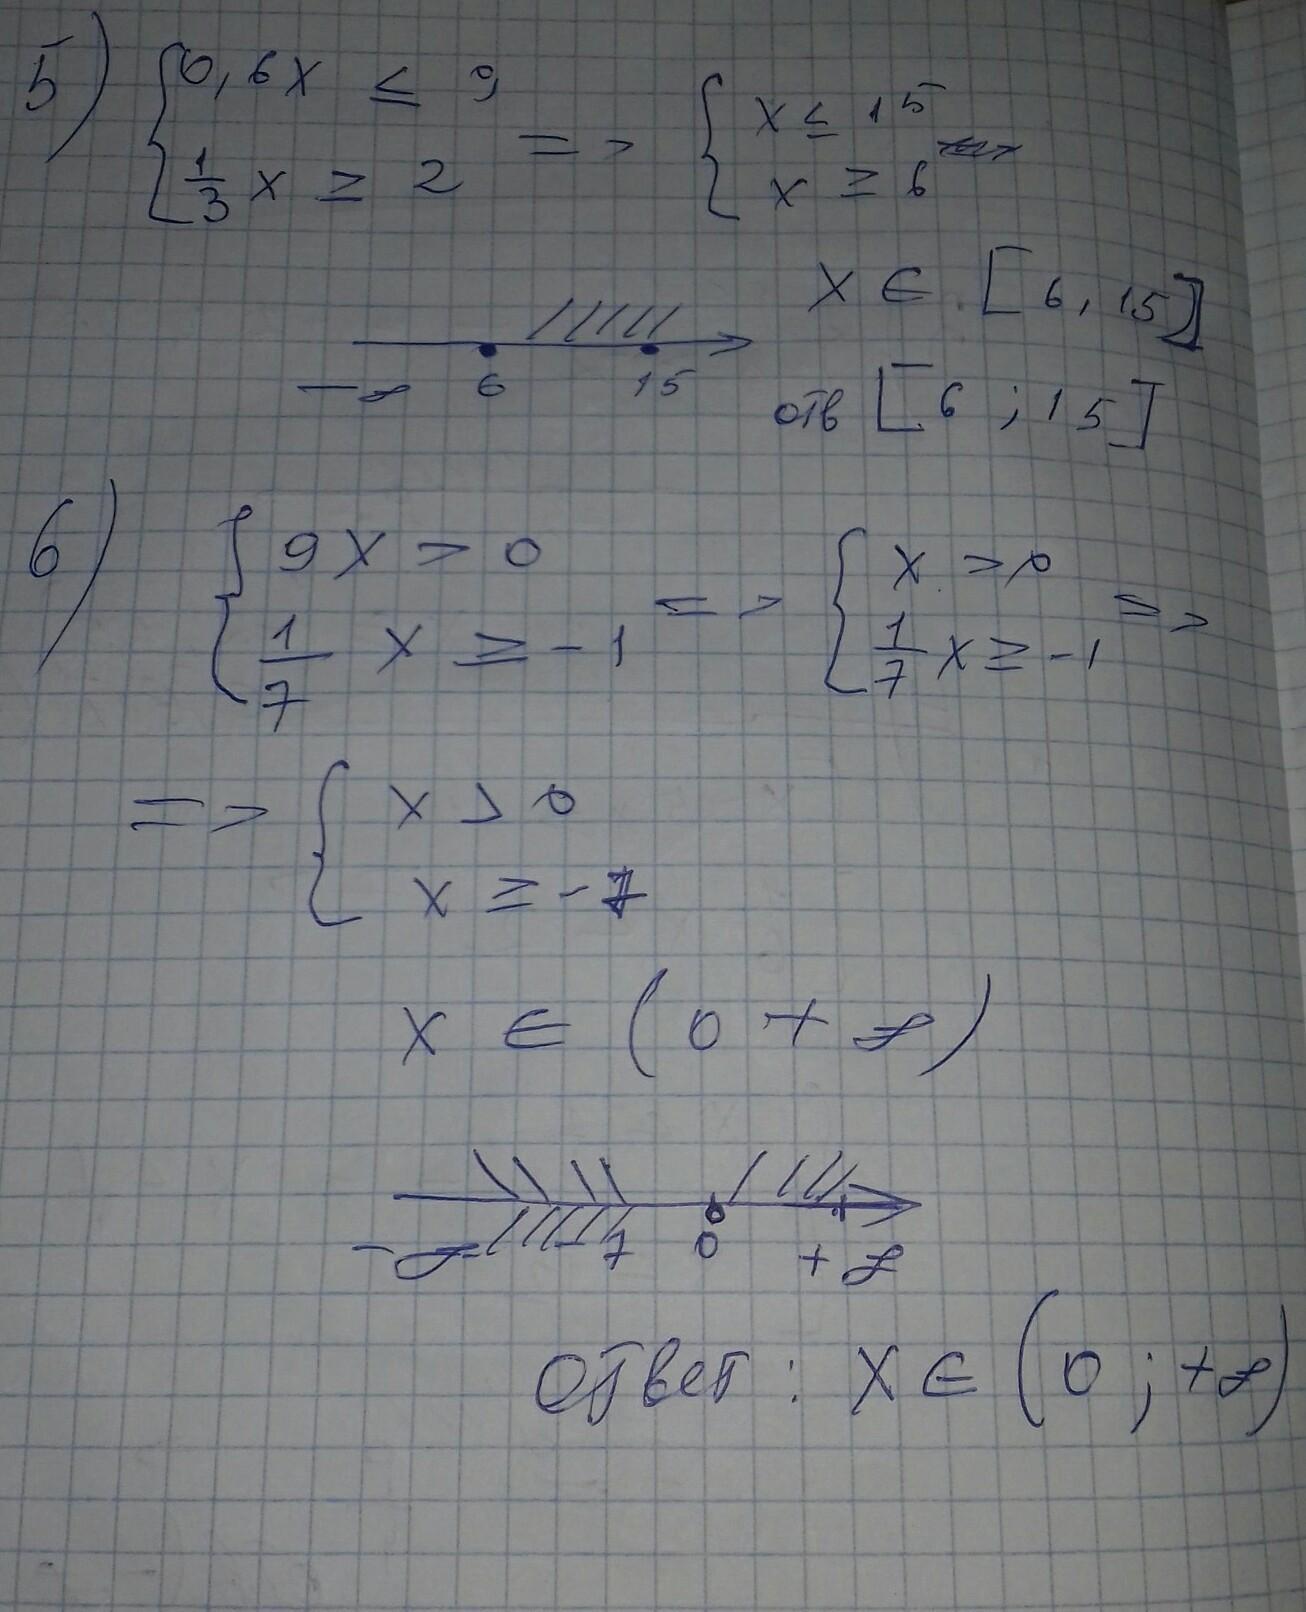 5) { 0,6x ≤ 9 => { x ≤ 15
1/3 x ≥ 2 x ≥ 6
x ∈ [6, 15]
-∞ 6 15
отв [6 ; 15]
6) { 9x > 0 => { x > 0 =>
1/7 x ≥ -1 1/7 x ≥ -1
=> { x > 0
x ≥ -7
x ∈ (0 + ∞)
-∞ -7 0 +∞
Ответ : x ∈ (0 ; +∞)